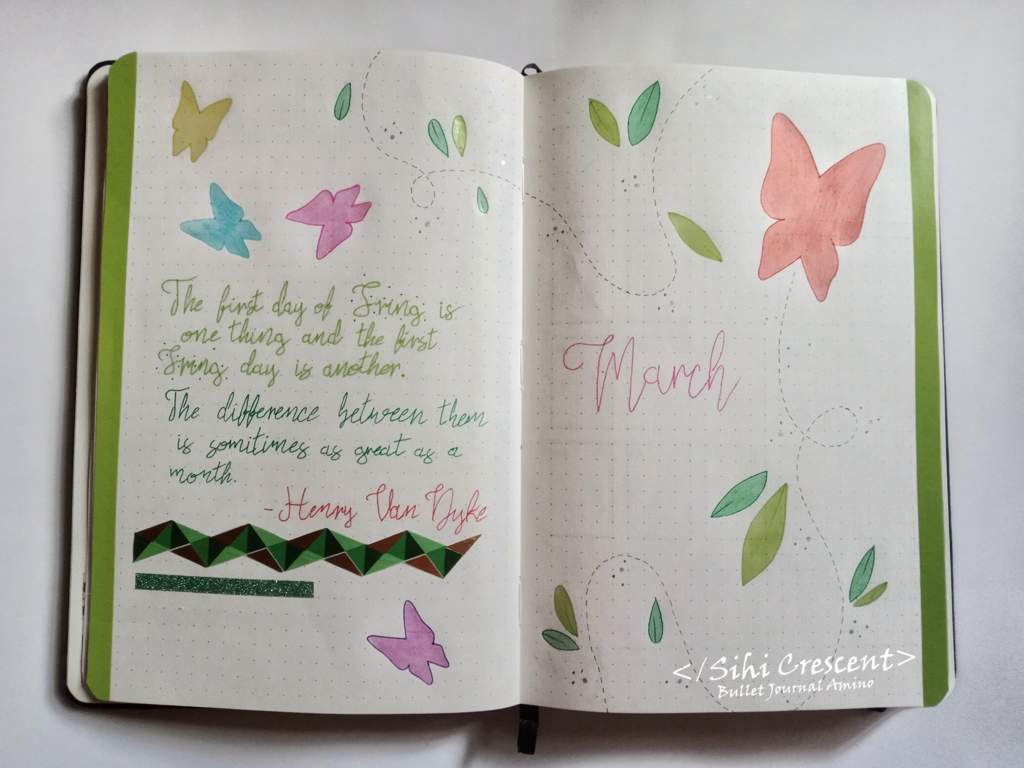 The first day of Spring is
one thing and the first
Spring day is another.
The difference between them
is somitimes as great as a
month.
-Henry Van Dyke
March
</Sihi Crescent>
Bullet Journal Amino